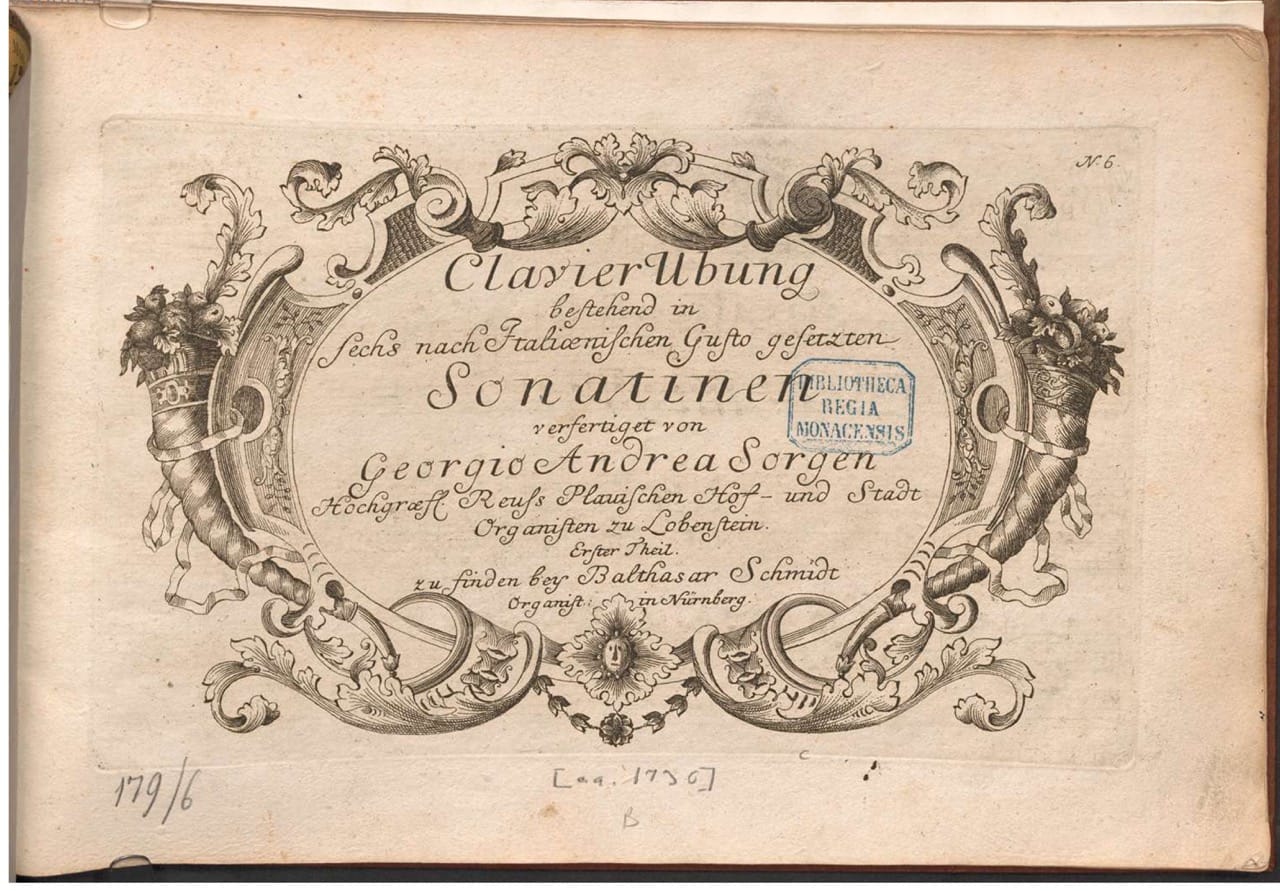 N. 6.
Clavier Ubung
bestehend in
sechs nach Italiænischen Gusto gesetzten
Sonatinen
BIBLIOTHECA
REGIA
MONACENSIS
verfertiget von
Georgio Andrea Sorgen
Hochgræfl. Reuss Plauischen Hof- und Stadt
Organisten zu Lobenstein.
Erster Theil.
zu finden bey Balthasar Schmidt
Organist: in Nürnberg.
179/6
[ca. 1736]
B